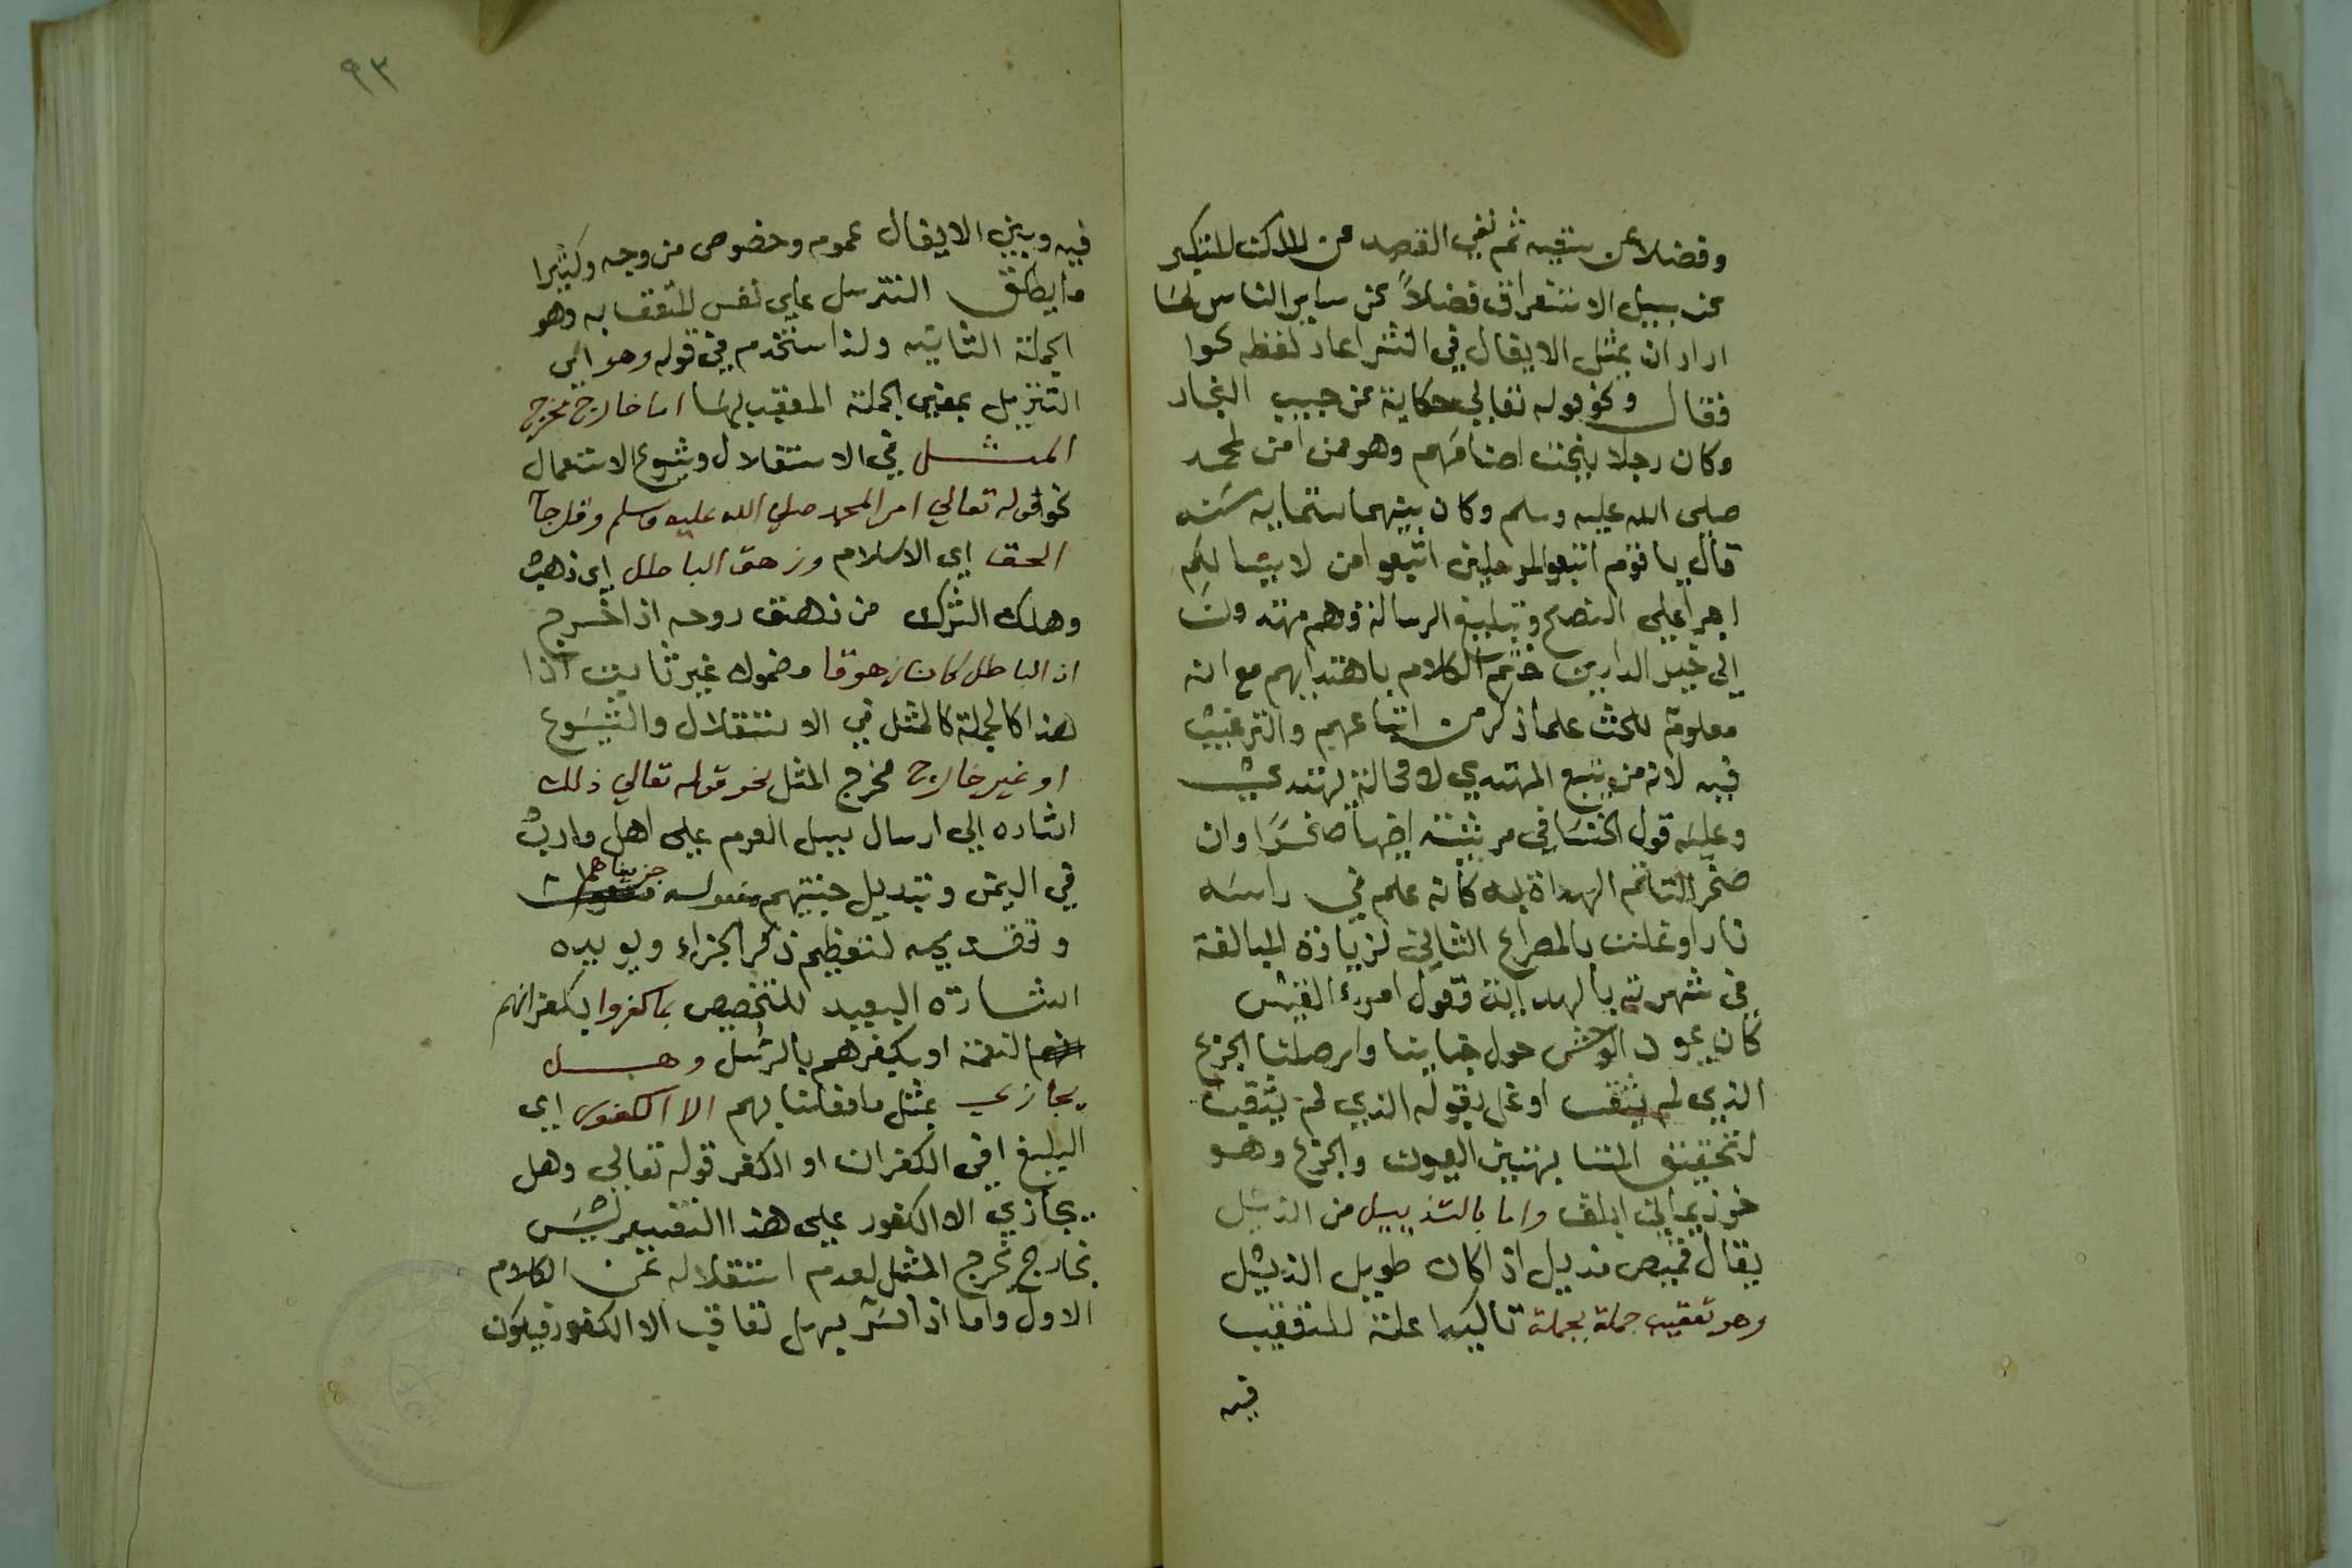 وفضلا عن سقيه ثم نفي القصد عن للاكت للتنكير
عن سبيل الاستغراق فضلاً عن ساير الناس لما
اراد ان يمثل الايغال في النثر اعاد لفظه كوا
فقال ونحو قوله تعالي حكاية عن حبيب النجار
وكان رجلا ينحت اصنامهم وهو ممن امن لمحمد
صلي الله عليه وسلم وكان بينهما ستمايه سنه
قال يا قوم اتبعوا المرسلين اتبعوا من لا يسالكم
اجرا علي النصح وتبليغ الرسالة وهم مهتدون
الي خير الدارين ختم الكلام باهتدايهم مع انه
معلوم للحث علما ذكر من اتباعهم والترغيب
فيه لانه من يتبع المهتدي لا محالة يهتدي
وعليه قول الخنسا في مرثيته اخيها صخرًا وان
صخر التاتم الهداة به كانه علم في راسه
نار اوغلت بالمصراع الثاني لزيادة المبالغة
في شهرته بالهداية وقول امرء القيس
كان عيون الوحش حول خباينا وارحلنا الجزع
الذي لم يثقب اوغل بقوله الذي لم يثقب
لتحقيق التشابه بين العيون والجزع وهو
خرز يماني ابلق واما بالتذييل من الذيل
يقال قميص مذيل اذا كان طويل الذيل
وهو تعقيب جملة بجملة تاكيدا علة للتعقيب
فيه
٩٣
فيه وبين الايغال عموم وخصوص من وجه وكثيرا
ما يطلق التزييل علي نفس المتعقب به وهو
الجملة الثانيه ولذا استخدم في قوله وهو اي
التنزيل بمعني الجملة المعقب لها اما خارج مخرج
المثل في الاستقلال وشيوع الاستعمال
نحو قوله تعالي امر المحمد صلي الله عليه وسلم وقل جآ
الحق اي الاسلام وزهق الباطل اي ذهب
وهلك الشرك من زهق روحه اذا خرج
ان الباطل كان زهوقا مضمونه غير ثابت اذا
هذا كالجملة كالمثل في الاستقلال والشيوع
او غير خارج مخرج المثل نحو قوله تعالي ذلك
اشاره الي ارسال سيل العرم علي اهل مارب
في اليمن وتبديل جنتيهم مفعول جزيناهم
وتقديمه لتعظيم ذكر الجزاء ويويده
اشارة البعيد للتخصيص بما كفروا بكفرانهم
النعمة او بكفرهم بالرسل وهل
يجازي بمثل ما فعلنا بهم الا الكفور اي
البليغ في الكفران او الكفر قوله تعالي وهل
يجازي الا الكفور علي هذا التفسير ليس
بخارج مخرج المثل لعدم استقلاله عن الكلام
الاول واما اذا فسر بهل نعاقب الا الكفور فيكون